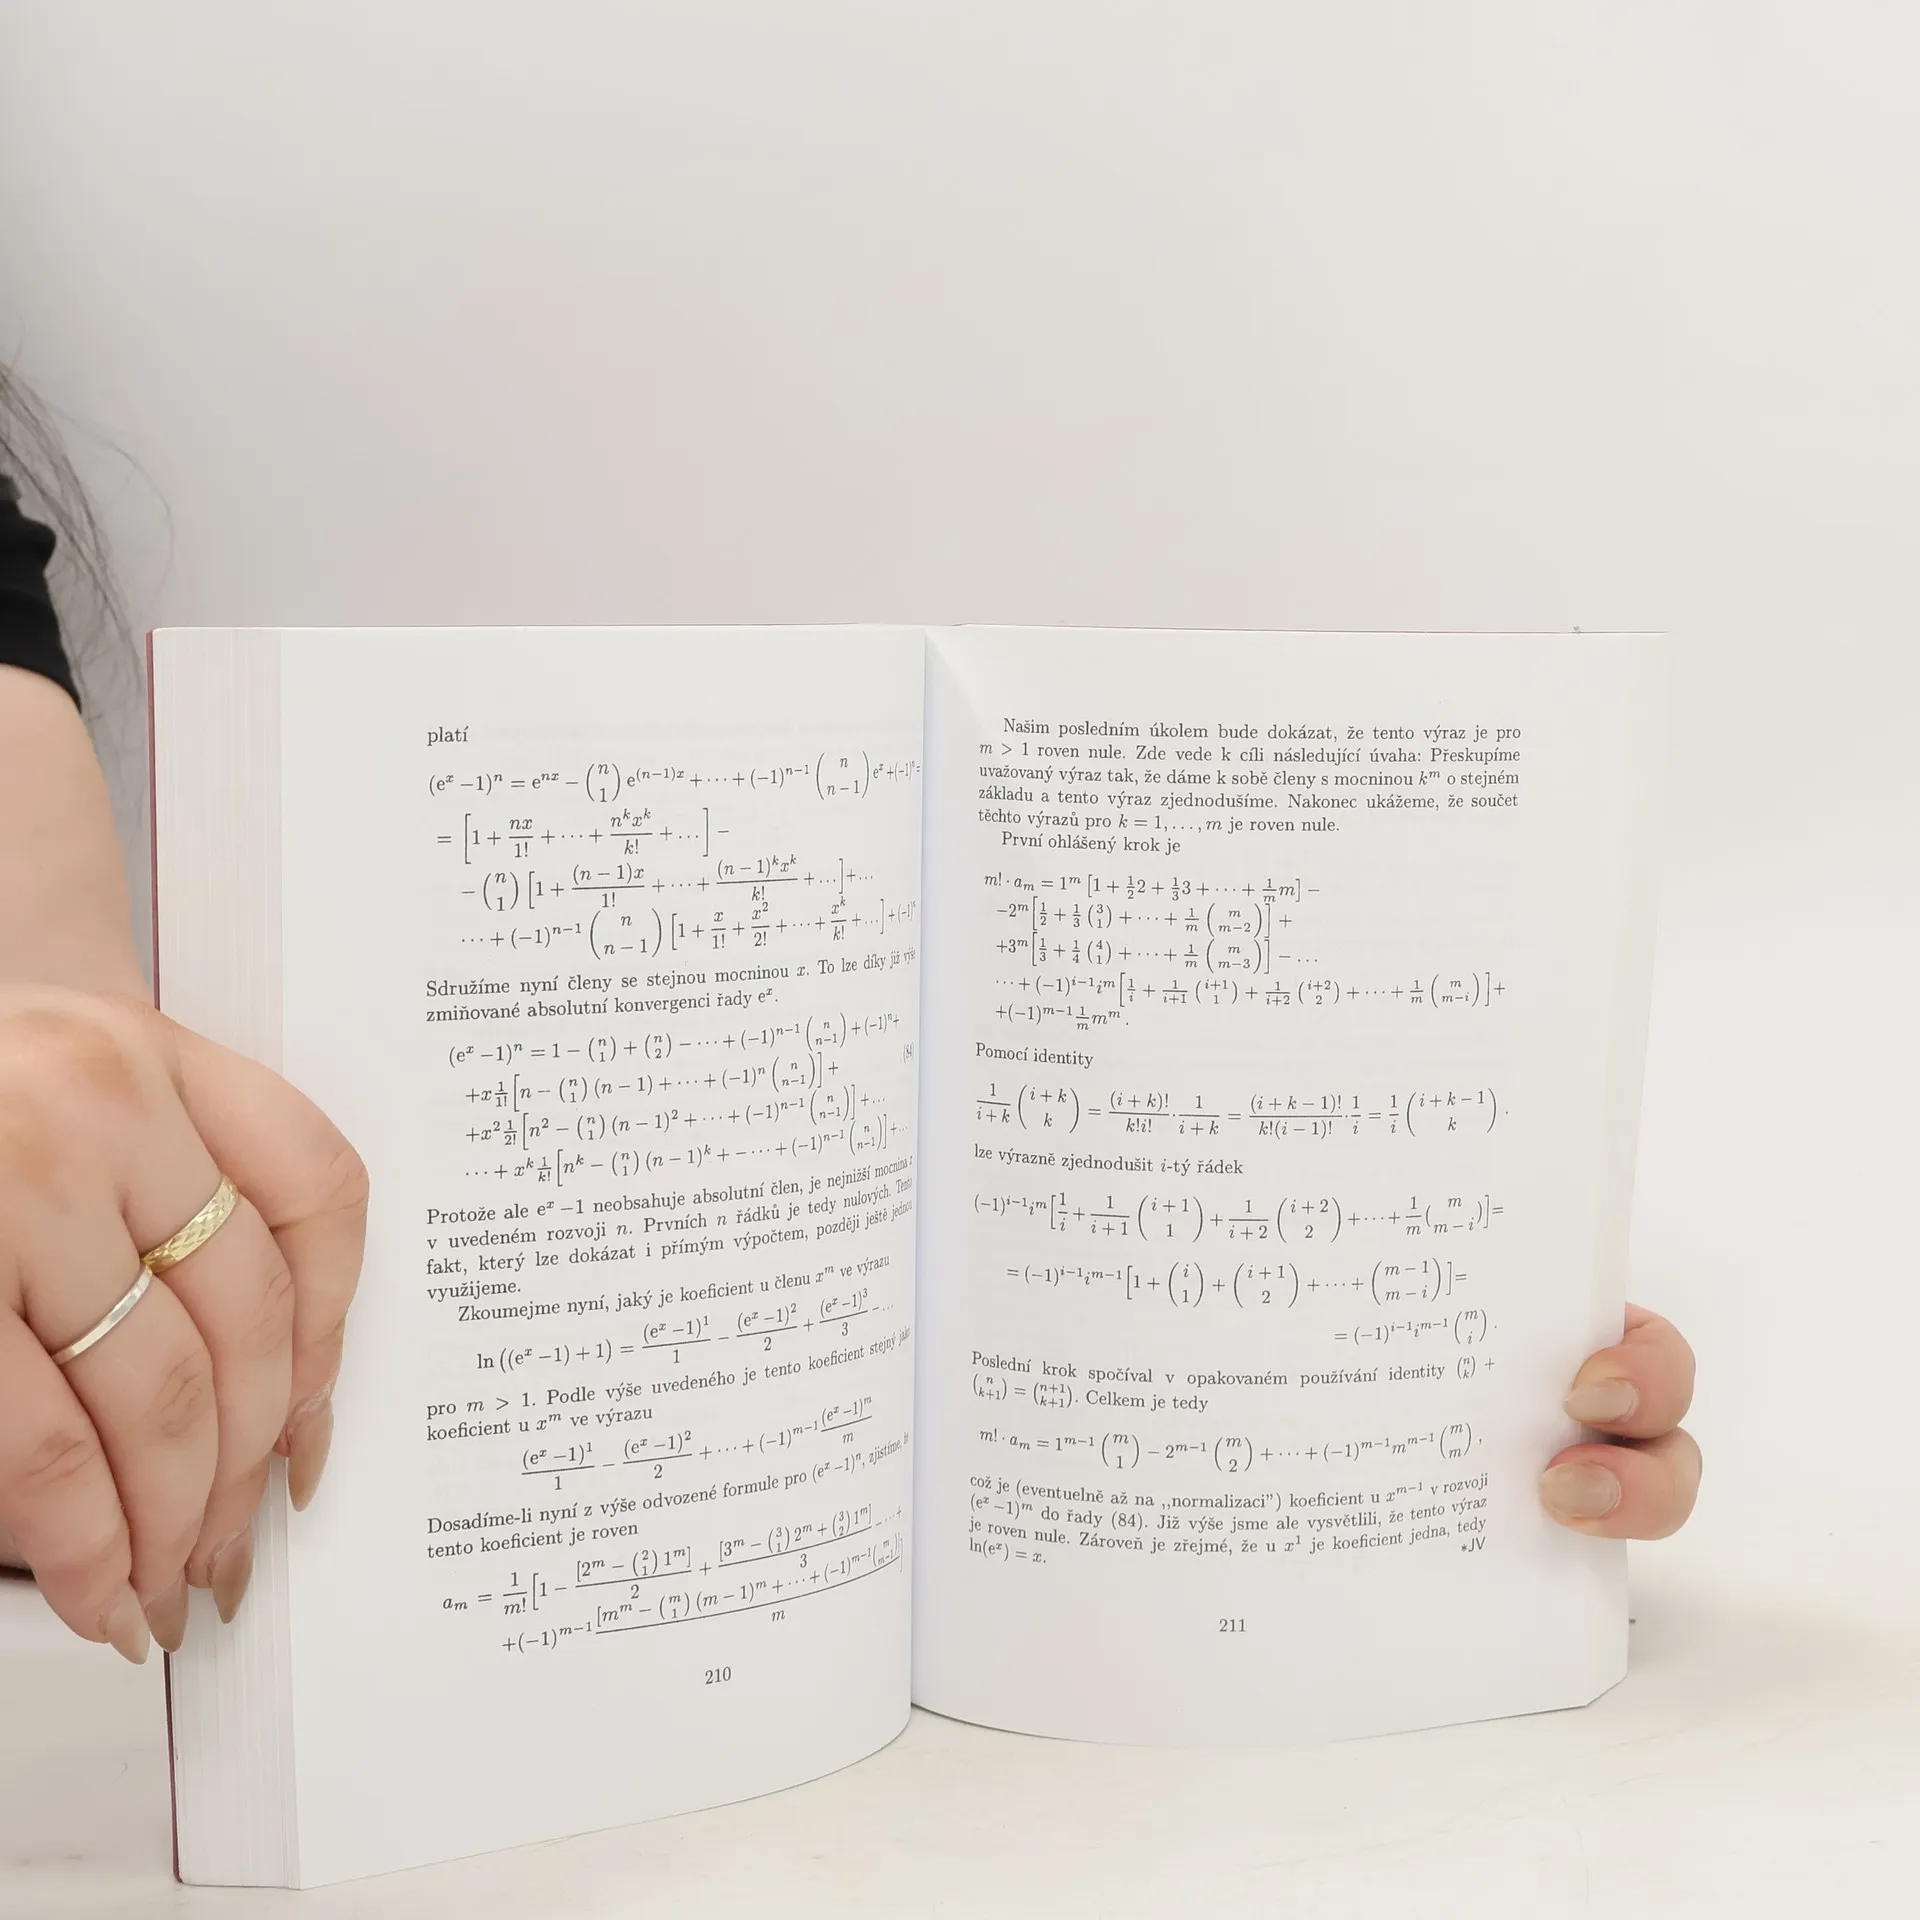 platí
(eˣ −1)ⁿ = eⁿˣ − (n 1) e⁽ⁿ⁻¹⁾ˣ + ⋯ + (−1)ⁿ⁻¹ (n n−1) eˣ +(−1)ⁿ =
= [1 + nx/1! + ⋯ + nᵏxᵏ/k! + …] −
− (n 1) [1 + (n − 1)x/1! + ⋯ + (n − 1)ᵏxᵏ/k! + …] + …
⋯ + (−1)ⁿ⁻¹ (n n−1) [1 + x/1! + x²/2! + ⋯ + xᵏ/k! + …] + (−1)ⁿ
Sdružíme nyní členy se stejnou mocninou x. To lze díky již výše
zmiňované absolutní konvergenci řady eˣ.
(eˣ −1)ⁿ = 1 − (n 1) + (n 2) − ⋯ + (−1)ⁿ⁻¹ (n n−1) + (−1)ⁿ +
(84
+x 1/1! [n − (n 1) (n − 1) + ⋯ + (−1)ⁿ (n n−1)] +
+x² 1/2! [n² − (n 1) (n − 1)² + ⋯ + (−1)ⁿ⁻¹ (n n−1)] + …
⋯ + xᵏ 1/k! [nᵏ − (n 1) (n − 1)ᵏ + − ⋯ + (−1)ⁿ⁻¹ (n n−1)] + …
Protože ale eˣ −1 neobsahuje absolutní člen, je nejnižší mocnina x
v uvedeném rozvoji n. Prvních n řádků je tedy nulových. Tento
fakt, který lze dokázat i přímým výpočtem, později ještě jednou
využijeme.
Zkoumejme nyní, jaký je koeficient u členu xᵐ ve výrazu
ln ((eˣ −1) + 1) = (eˣ −1)¹/1 − (eˣ −1)²/2 + (eˣ −1)³/3 − …
pro m > 1. Podle výše uvedeného je tento koeficient stejný jako
koeficient u xᵐ ve výrazu
(eˣ −1)¹/1 − (eˣ −1)²/2 + ⋯ + (−1)ᵐ⁻¹ (eˣ −1)ᵐ/m
Dosadíme-li nyní z výše odvozené formule pro (eˣ −1)ⁿ, zjistíme, že
tento koeficient je roven
aₘ = 1/m! [1 − [2ᵐ − (2 1) 1ᵐ]/2 + [3ᵐ − (3 1) 2ᵐ + (3 2) 1ᵐ]/3 − ⋯ +
+(−1)ᵐ⁻¹ [mᵐ − (m 1) (m − 1)ᵐ + ⋯ + (−1)ᵐ⁻¹ (m m−1)]/m
210
Našim posledním úkolem bude dokázat, že tento výraz je pro
m > 1 roven nule. Zde vede k cíli následující úvaha: Přeskupíme
uvažovaný výraz tak, že dáme k sobě členy s mocninou kᵐ o stejném
základu a tento výraz zjednodušíme. Nakonec ukážeme, že součet
těchto výrazů pro k = 1, …, m je roven nule.
První ohlášený krok je
m! · aₘ = 1ᵐ [1 + 1/2 2 + 1/3 3 + ⋯ + 1/m m] −
−2ᵐ [1/2 + 1/3 (3 1) + ⋯ + 1/m (m m−2)] +
+3ᵐ [1/3 + 1/4 (4 1) + ⋯ + 1/m (m m−3)] − …
⋯ + (−1)ⁱ⁻¹iᵐ [1/i + 1/i+1 (i+1 1) + 1/i+2 (i+2 2) + ⋯ + 1/m (m m−i)] +
+(−1)ᵐ⁻¹ 1/m mᵐ.
Pomocí identity
1/i+k (i+k k) = (i+k)!/k!i! · 1/i+k = (i+k−1)!/k!(i−1)! · 1/i = 1/i (i+k−1 k).
lze výrazně zjednodušit i-tý řádek
(−1)ⁱ⁻¹iᵐ [1/i + 1/i+1 (i+1 1) + 1/i+2 (i+2 2) + ⋯ + 1/m (m m−i)] =
= (−1)ⁱ⁻¹iᵐ⁻¹ [1 + (i 1) + (i+1 2) + ⋯ + (m−1 m−i)] =
= (−1)ⁱ⁻¹iᵐ⁻¹ (m i).
Poslední krok spočíval v opakovaném používání identity (n k) +
(n k+1) = (n+1 k+1). Celkem je tedy
m! · aₘ = 1ᵐ⁻¹ (m 1) − 2ᵐ⁻¹ (m 2) + ⋯ + (−1)ᵐ⁻¹mᵐ⁻¹ (m m),
což je (eventuelně až na ,,normalizaci”) koeficient u xᵐ⁻¹ v rozvoji
(eˣ −1)ᵐ do řady (84). Již výše jsme ale vysvětlili, že tento výraz
je roven nule. Zároveň je zřejmé, že u x¹ je koeficient jedna, tedy
ln(eˣ) = x.
*JV
211